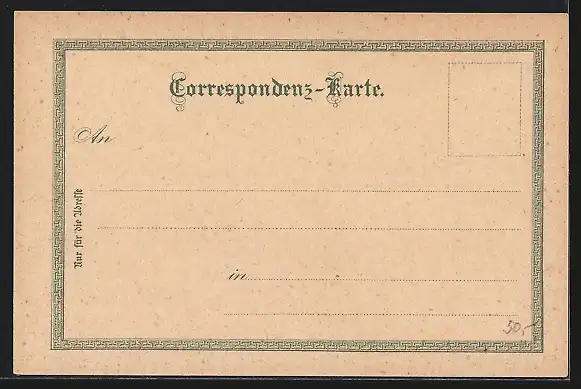 Correspondenz-Karte.
An
Nur für die Adresse
in
50,-